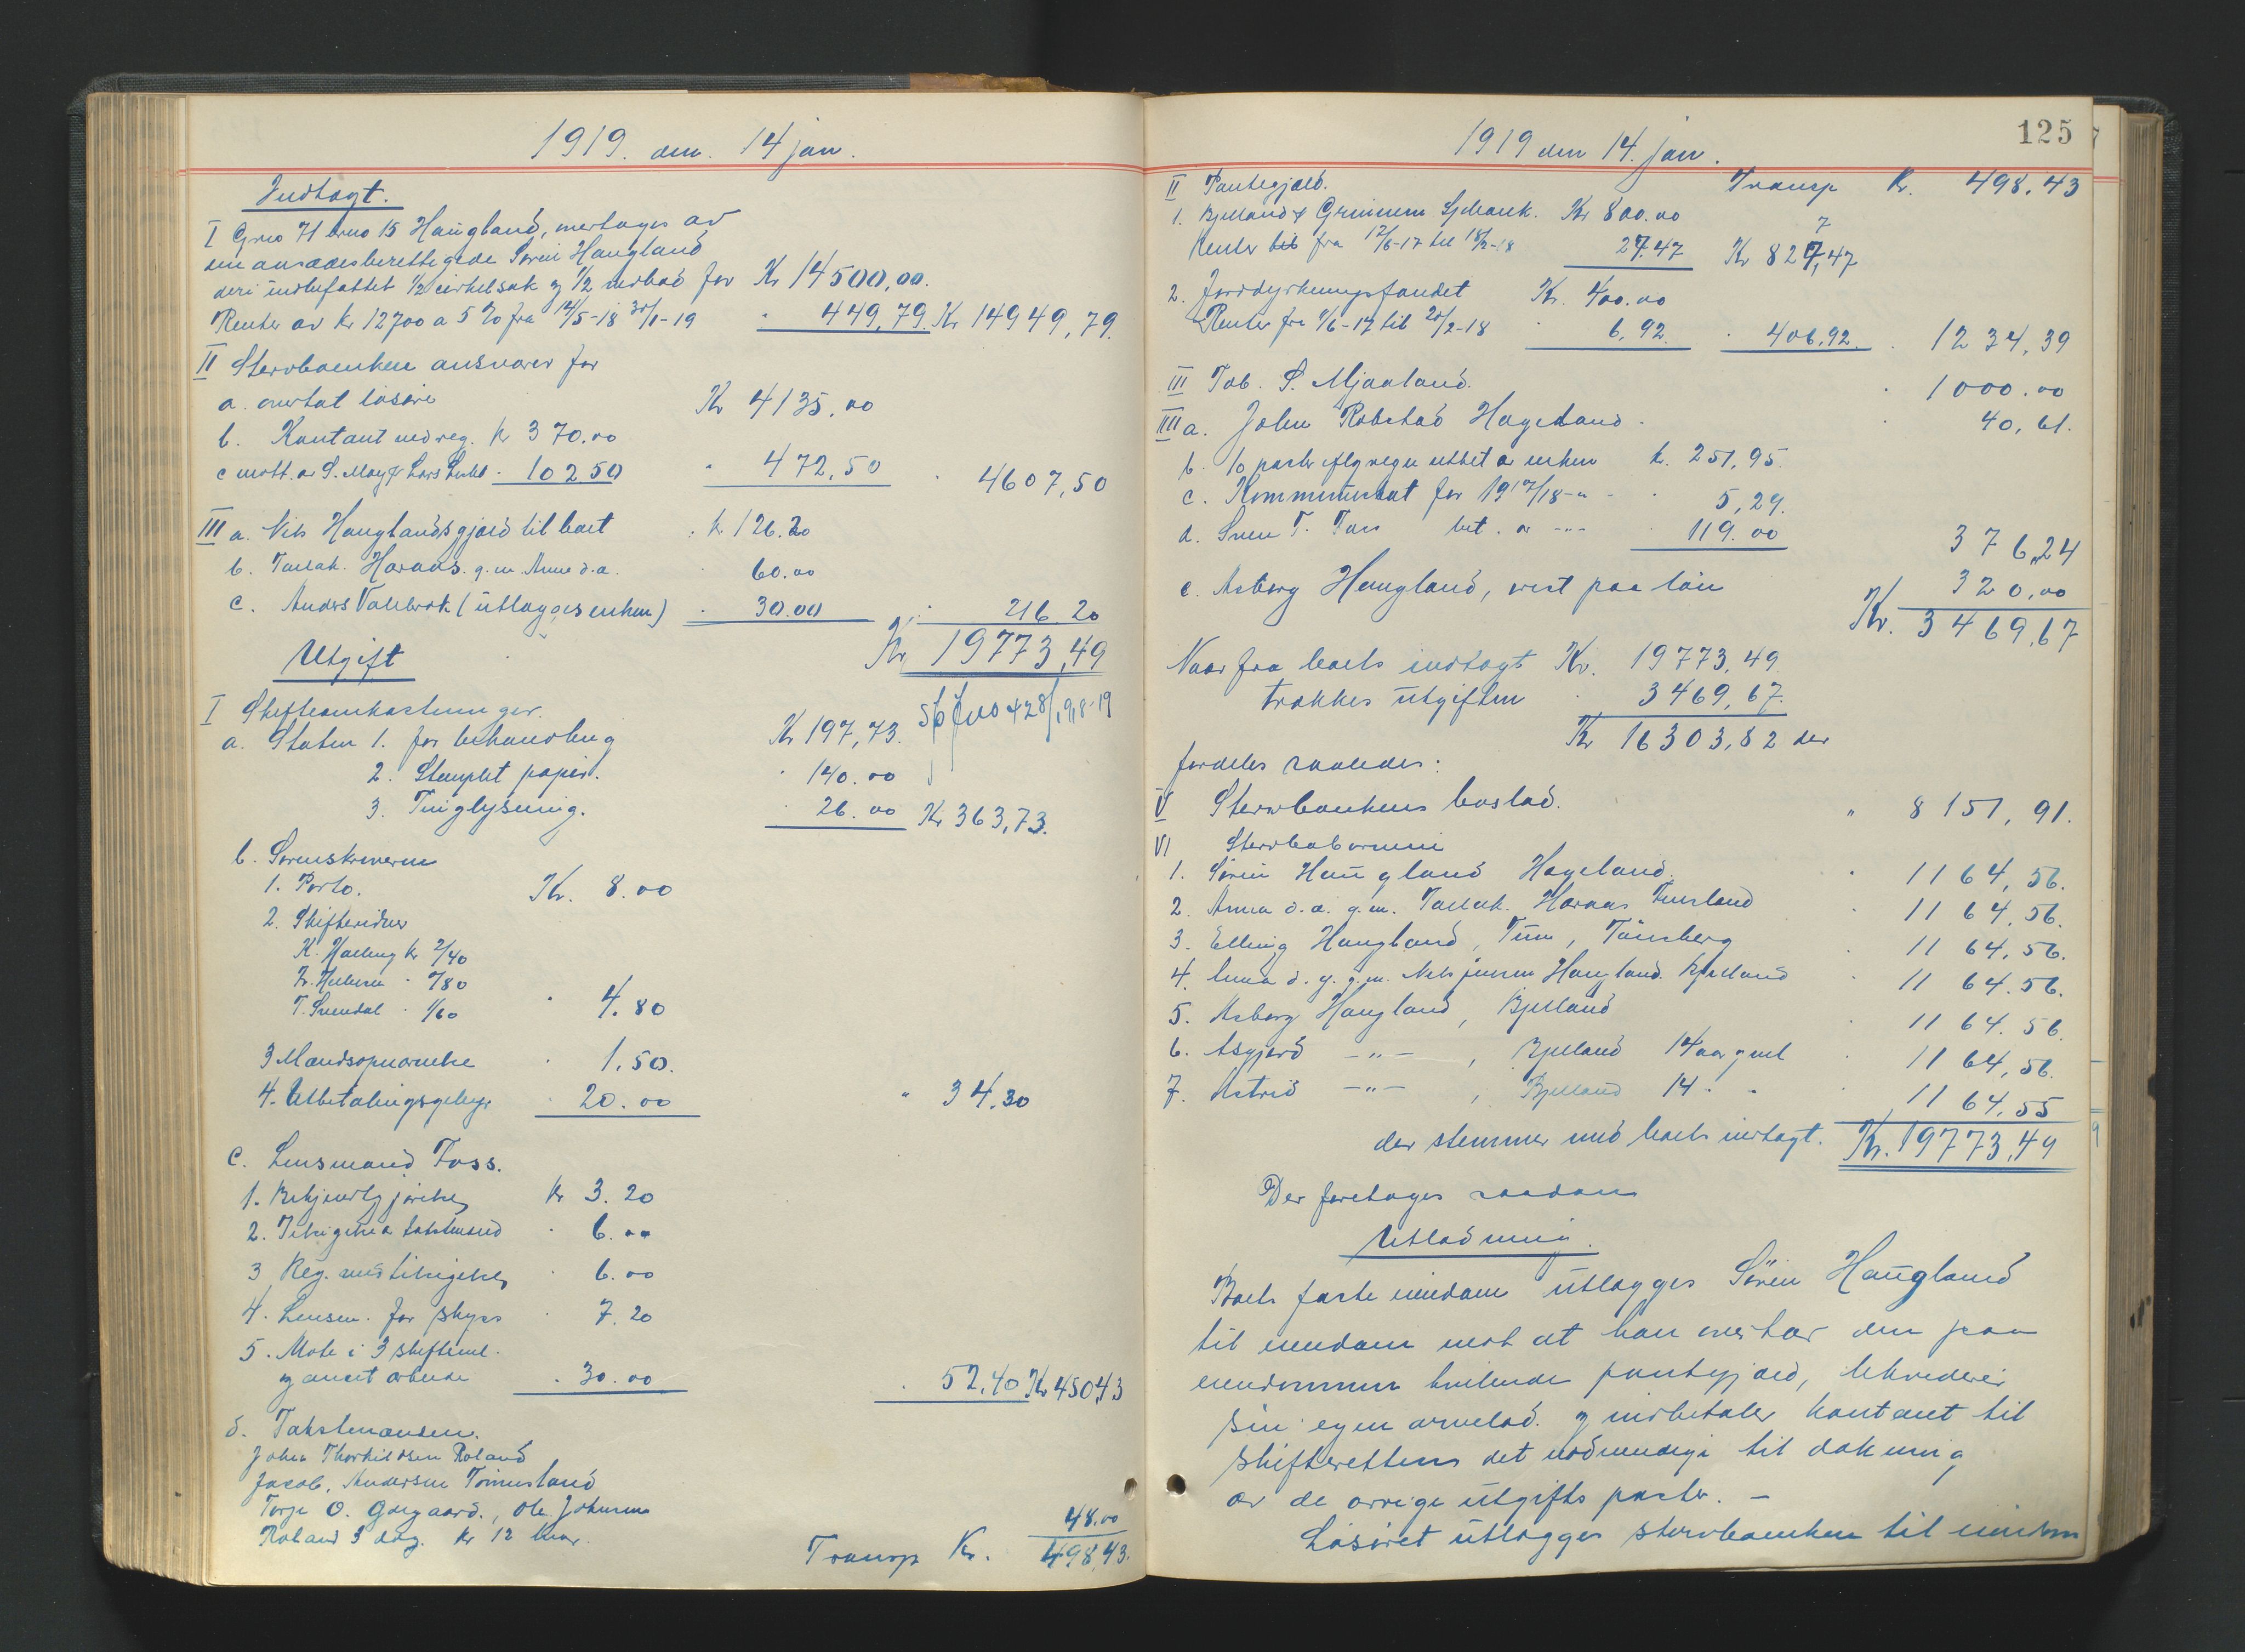 1919. den. 14 jan.
Indtægt.
I Grno 71 brno 15 Haugland, overtages av
den aasædesberettigede Sørin Haugland
deri indbefattet 1/2 cirkelsak og 1/2 for Kr 14500,00.
Renter av kr 12700 a 5 % fra 14/5-18 31/1-19 " 449,79. Kr 14949,79.
II Stervboenken ansvarer for
a. overtat løsøre Kr 4135,00
b. Kontant ved reg. kr 370.00
c mott. av S. May & Lars - 102.50 " 472,50 " 4607,50
III a. Nils Hauglands gjæld til boet . kr 126.20
b. Tallak. Haraas. g. m. Anna d.æ. 60.00
c. Anders Valebrok (utlægges enken) . 30.00 " 216.20
Kr 19773,49
Utgift
I Skifteomkostninger.
a. Staten 1. for behandling Kr 197,73.
2. Stemplet papir. . 140.00
3. Tinglysning. . 26.00 Kr 363,73.
b. Sorenskriveren
1. Porto. Kr. 8.00
2. Skiftevidner
K. kr 2/40
- /80
T. Svendal . 1/60 " 4.80
3 Mandsopnævnelse . 1,50.
4. Utbetalingsgebyr . 20.00 " 34.30
c. Lensmand Foss.
1. Bekjentgjørelse kr 3.20
2. Tilsigelse a takstmænd . 6.00
3 Reg. med tilsigelse . 6.00
4. Lensm. for skyss . 7.20
5. Møte i 3 skiftesml.
og andet arbeide . 30.00 . 52,40 Kr 450,43
d. Takstmænden.
Johan Thorkildsen Roland
Jacob. Andersen Tønnesland
Torje O. Godgaard., Ole Johnsen
Roland 3 dag. kr 12 hver. 48.00
Transp Kr. 498,43.
125
1919 den 14. jan.
II Pantegjæld. Transp Kr. 498,43
1. Bjelland & Grinnem Spbank. Kr 800.00
Renter fra 12/6-17 til 18/2-18 27.47 Kr 827,47
2. Jorddyrkningsfondet Kr. 400.00
Renter fra 1/6-17 til 20/2-18 6,92. . 406,92. . 1234,39
III Tob. S. Mjaaland. . 1000.00
IIII a. John Robstad Hageland. . 40,61.
b. 10 poster iflg regn utbet av enken k. 251,95.
c. Kommuneskat for 1917/18 -"- . 5,29.
d. Sven T. Foss bet. av -"- . 119.00 376,24
e. Asborg Haugland, rest paa løn 320,00
Kr. 3469,67
Naar fra boets indtægt Kr. 19773,49
trækkes utgiften . 3469,67.
Kr 16303,82 der
fordeles saaledes:
V Stervboenkens boslod. " 8151,91.
VI Stervbobørnene
1. Sørin Haugland Hageland. . 1164,56.
2. Anna d.æ. g.m. Tallak. Haraas Finsland . 1164,56.
3. Elling Haugland, Tiun, Tønsberg . 1164,56.
4. Anna d. y. g.m. Nels Jensen Haugland. Bjelland . 1164.56.
5. Asborg Haugland, Bjelland . 1164.56
6. Asgjerd -"-, Bjelland 14 aar gml . 1164,56.
7. Astrid -"-, Bjelland 14 - - . 1164,55
der stemmer med boets indtægt. Kr. 19773,49
Der foretages saadan
Utlodning.
Boets faste eiendom utlægges Sørin Haugland
til eiendom mot at han overtar den paa
eiendommen hvilende pantegjæld, likviderer
sin egen arvelod. og indbetaler kontant til
skifteretten det nødvendige til dækning
av de øvrige utgifts poster. —
Løsøret utlægges stervboenken til eiendom